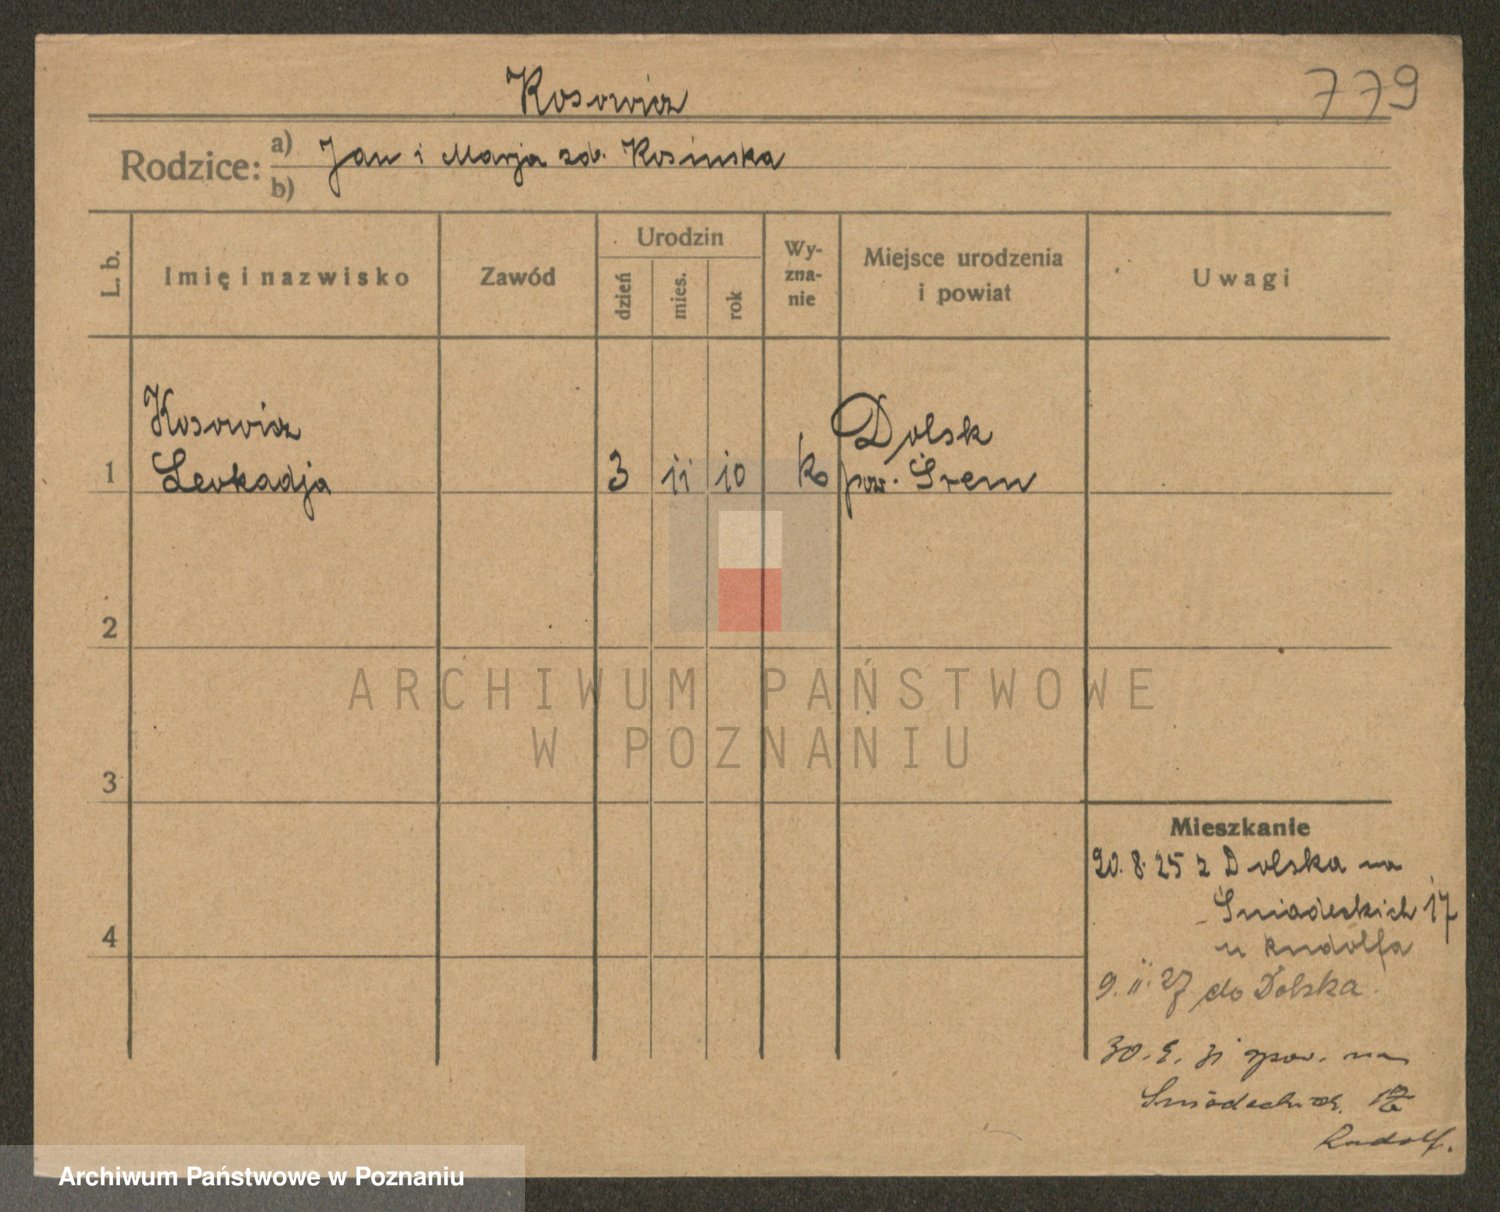 Kosowicz
779
Rodzice: a) Jan i Marja zd. Kosinska
b)
L. b.
Imię i nazwisko
Zawód
Urodzin
dzień
mies.
rok
Wy-
zna-
nie
Miejsce urodzenia
i powiat
Uwagi
Kosowicz
1 Leokadja 3 11 10 k
Dolsk
pow. Śrem
2
ARCHIWUM PAŃSTWOWE
W POZNANIU
3
Mieszkanie
20. 8. 25 z Dolska na
Śniadeckich 17
4
u Rudolfa
9. 11. 27 do Dolska.
30. 31 pow. na
Śniadeckich
Rudolf.
Archiwum Państwowe w Poznaniu